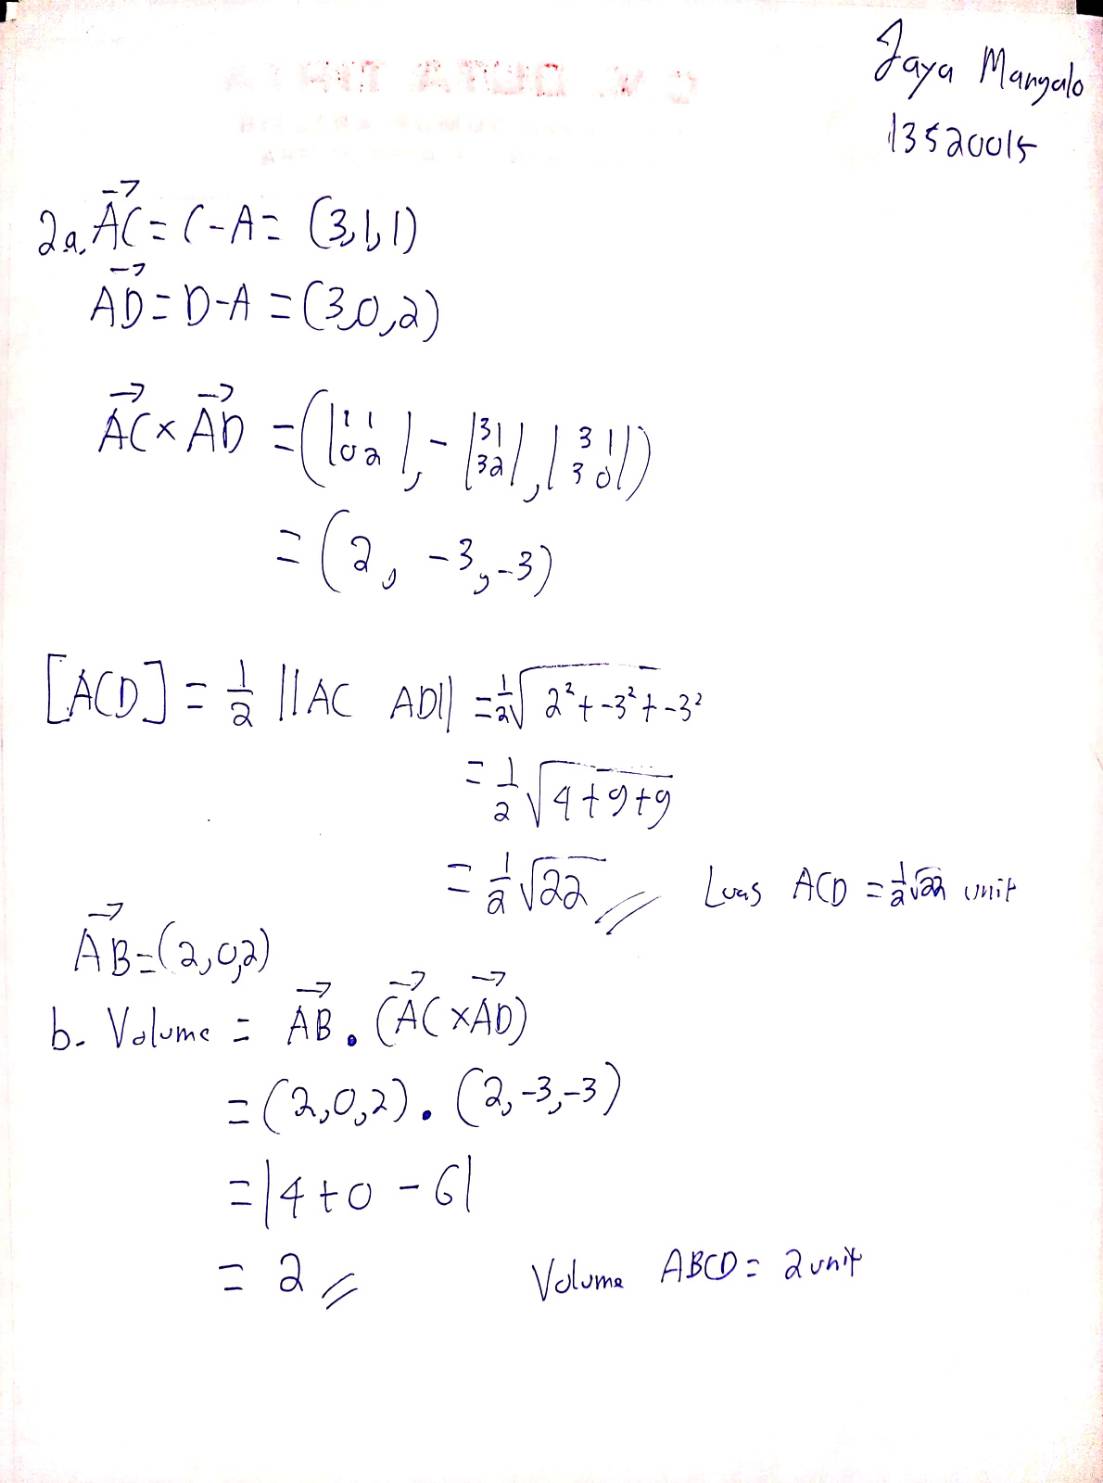 Jaya Mangalo
13520015
2a. →AC = C-A = (3,1,1)
→AD = D-A = (3,0,2)
→AC × →AD = (|1 1; 0 2|, -|3 1; 3 2|, |3 1; 3 0|)
= (2, -3, -3)
[ACD] = 1/2 ||AC AD|| = 1/2 √(2² + -3² + -3²)
= 1/2 √(4+9+9)
= 1/2 √22 // Luas ACD = 1/2 √22 unit
→AB = (2,0,2)
b. Volume = →AB . (→AC × →AD)
= (2,0,2) . (2,-3,-3)
= |4 + 0 - 6|
= 2 // Volume ABCD = 2 unit